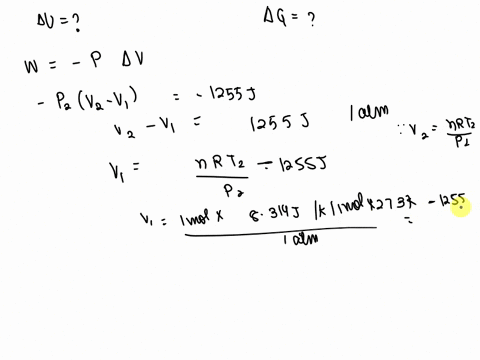 ΔU = ? ΔG = ?
W = - P ΔV
- P₂ (V₂ - V₁) = - 1255 J
V₂ - V₁ = 1255 J 1 atm ∵ V₂ = nRT₂ / P₂
V₁ = nRT₂ / P₂ - 1255J
V₁ = 1mol × 8.314J /K/1mol × 273K / 1 atm = - 1255